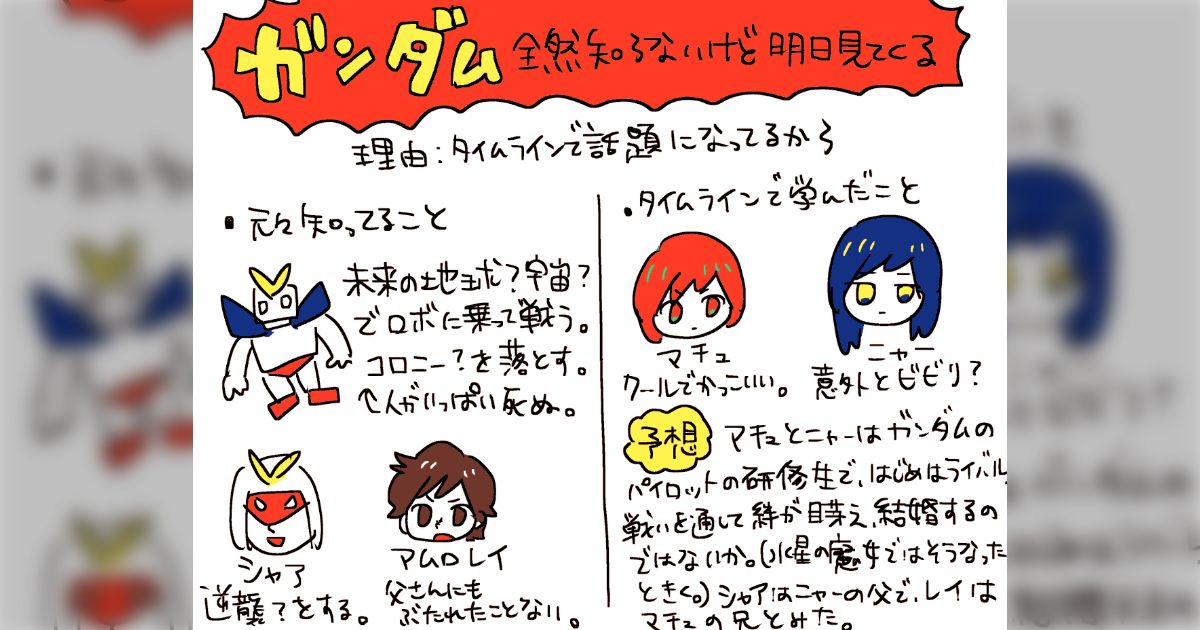 ガンダム 全然知らないけど明日見てくる
理由:タイムラインで話題になってるから
・元々知ってること
未来の地球?宇宙?
でロボに乗って戦う。
コロニー?を落とす。
↑人がいっぱい死ぬ。
シャア
逆襲?をする。
アムロレイ
父さんにも
ぶたれたことない。
・タイムラインで学んだこと
マチュ
クールでかっこいい。
ニャー
意外とビビリ?
予想
マチュとニャーはガンダムの
パイロットの研修生で、はじめはライバル、
戦いを通して絆が芽え、結婚するの
ではないか。(水星の魔女ではそうなった
ときく。)シャアはニャーの父で、レイは
マチュの兄とみた。